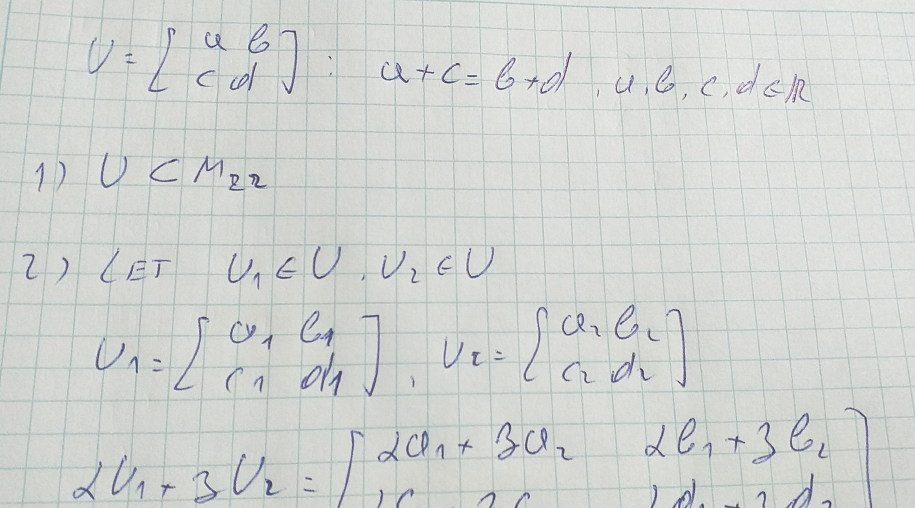 U = [ a b
c d ] : a + c = b + d , a, b, c, d ∈ ℝ
1) U ⊂ M₂₂
2) LET U₁ ∈ U , U₂ ∈ U
U₁ = [ a₁ b₁
c₁ d₁ ] , U₂ = [ a₂ b₂
c₂ d₂ ]
αU₁ + βU₂ = [ αa₁ + βa₂ αb₁ + βb₂